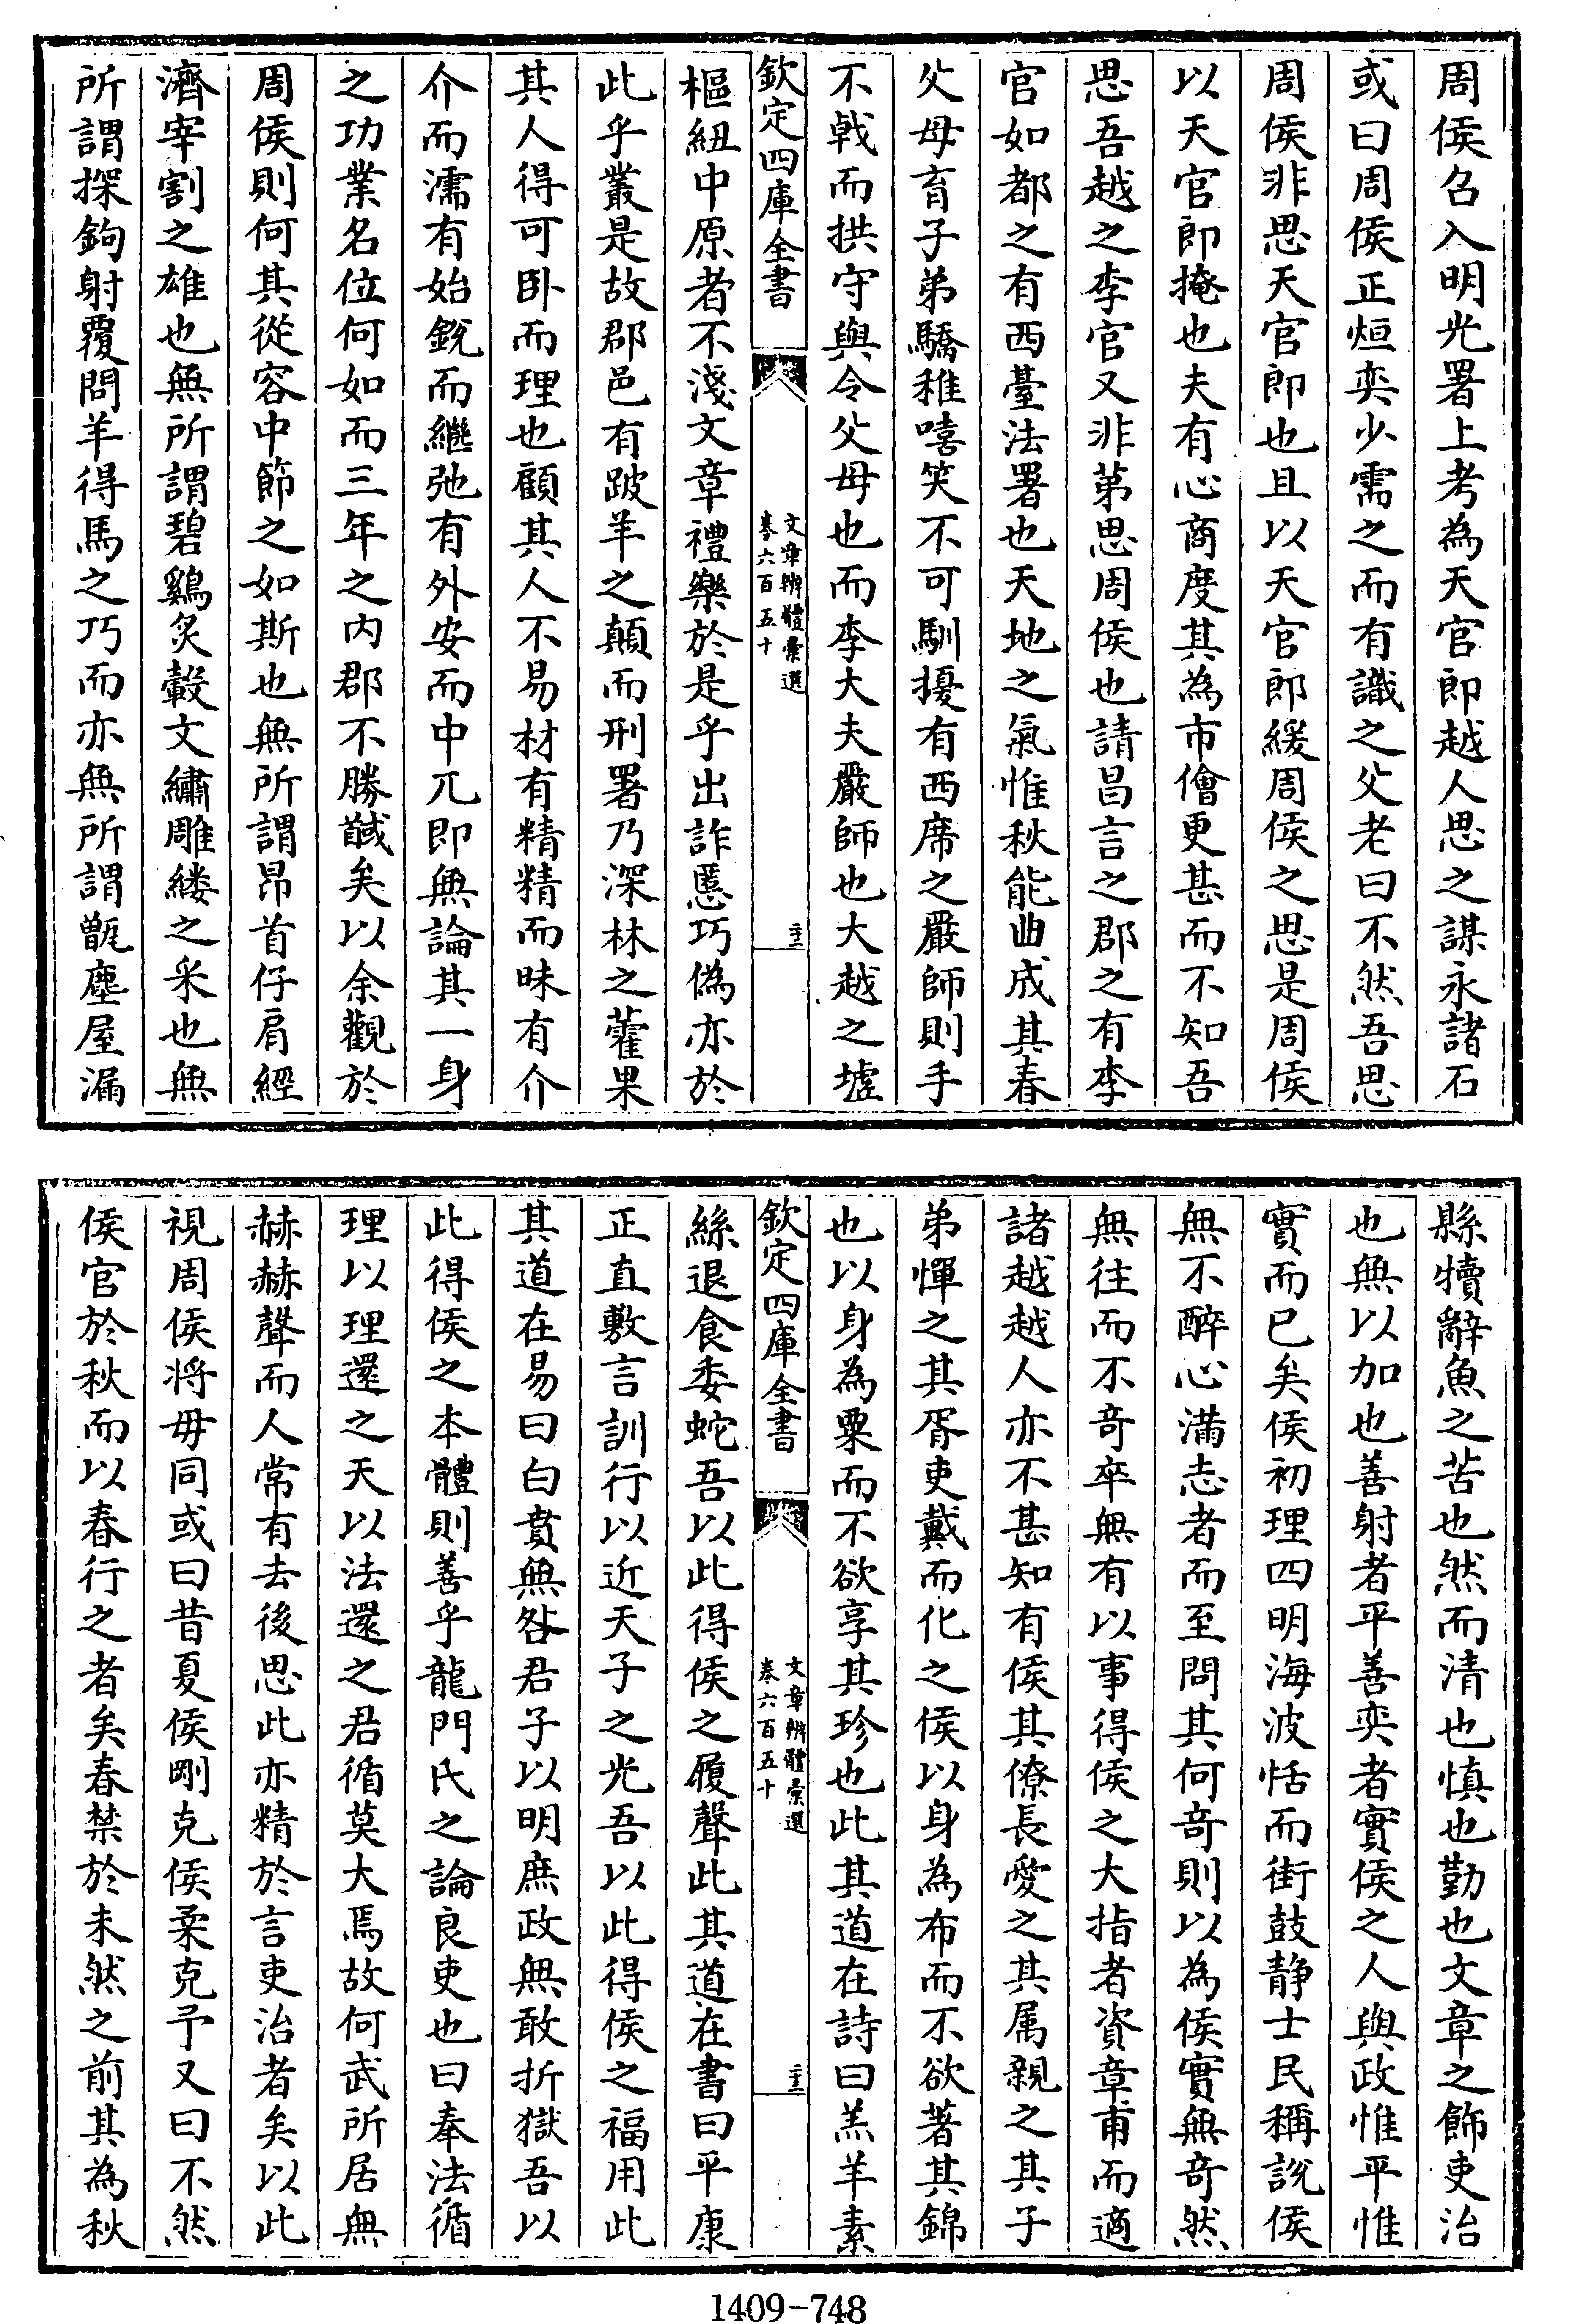 周侯召入明光署上考為天官郎越人思之謀永諸石
或曰周侯正烜奕少需之而有識之父老曰不然吾思
周侯非思天官郎也且以天官郎緩周侯之思是周侯
以天官郎掩也夫有心商度其為市儈更甚而不知吾
思吾越之李官又非苐思周侯也請昌言之郡之有李
官如都之有西臺法署也天地之氣惟秋能曲成其春
父母育子弟驕稚嘻笑不可馴擾有西席之嚴師則手
不戟而拱守與令父母也而李大夫嚴師也大越之墟
欽定四庫全書
文章辨體彙選
卷六百五十
二十三
樞紐中原者不淺文章禮樂於是乎出詐慝巧偽亦於
此乎叢是故郡邑有跛羊之顛而刑署乃深林之藿果
其人得可卧而理也顧其人不易材有精精而昧有介
介而濡有始銳而繼弛有外安而中兀即無論其一身
之功業名位何如而三年之內郡不勝馘矣以余觀於
周侯則何其從容中節之如斯也無所謂昂首仔肩經
濟宰割之雄也無所謂碧鷄炙轂文繡雕縷之采也無
所謂探鉤射覆問羊得馬之巧而亦無所謂甑塵屋漏
縣犢辭魚之苦也然而清也慎也勤也文章之飾吏治
也無以加也善射者平善奕者實侯之人與政惟平惟
實而已矣侯初理四明海波恬而街鼓静士民稱說侯
無不醉心滿志者而至問其何奇則以為侯實無奇然
無往而不奇卒無有以事得侯之大指者資章甫而適
諸越越人亦不甚知有侯其僚長愛之其属親之其子
弟憚之其胥吏戴而化之侯以身為布而不欲著其錦
也以身為粟而不欲享其珍也此其道在詩曰羔羊素
欽定四庫全書
文章辨體彙選
卷六百五十
二十三
絲退食委蛇吾以此得侯之履聲此其道在書曰平康
正直敷言訓行以近天子之光吾以此得侯之福用此
其道在易曰白賁無咎君子以明庶政無敢折獄吾以
此得侯之本體則善乎龍門氏之論良吏也曰奉法循
理以理還之天以法還之君循莫大焉故何武所居無
赫赫聲而人常有去後思此亦精於言吏治者矣以此
視周侯将毋同或曰昔夏侯剛克侯柔克予又曰不然
侯官於秋而以春行之者矣春禁於未然之前其為秋
1409-748